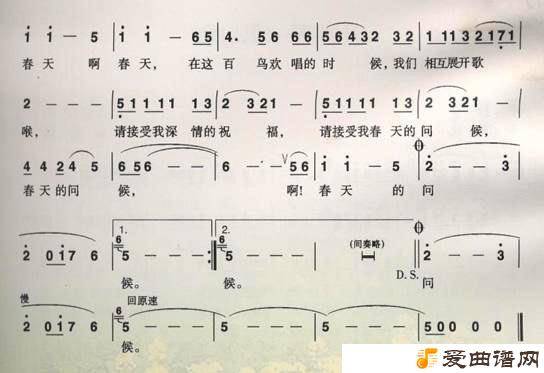 i i - 5 i i - 65 4. 56 66 56432 32 113217i
春天 啊 春天，在这百 鸟欢唱的时 候，我们 相互展开歌
2 - - - 511111 13 2 321 511111 13 2 321
喉， 请接受我深 情的祝 福， 请接受我春天的问 候，
4424 5 656 - - 6 - - V 56 i i - 5 2 - - 3
春天的问 候， 啊！春 天 的 问
2 0i7 6 1. 5 - - - 2. 5 - - - (间奏略) 2 - - 3
候。 候。 D.S. 问
慢 回原速
2 0i7 6 5 - - - 5 - - - 5 - - - 5000
候。
爱曲谱网